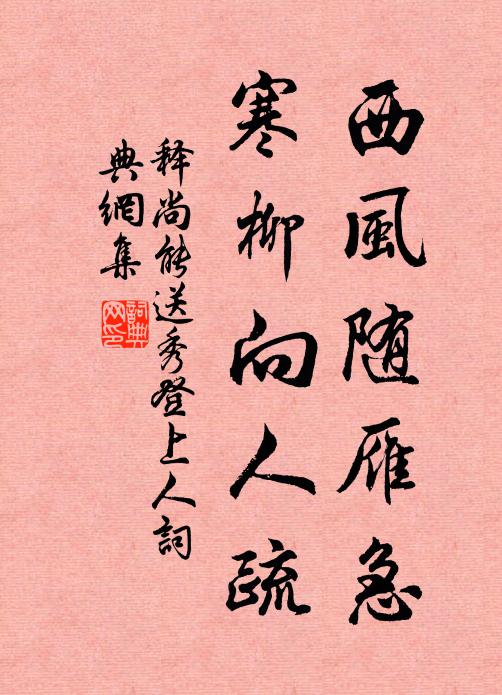 西風随雁急
寒柳向人疏
释尚能送秀登上人詞
典網集
詞典网印